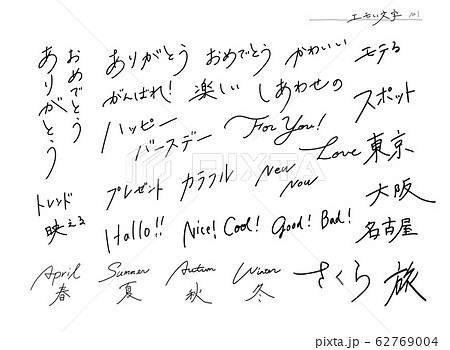 エモい文字 101
ありがとう
おめでとう
ありがとう おめでとう かわいい エモてる
がんばれ! 楽しい しあわせの スポット
ハッピー
バースデー
For You!
Love 東京
トレンド
映える
プレゼント カラフル New
Now
大阪
Hallo!! Nice! Cool! Good! Bad! 名古屋
April Summer Autumn Winter さくら 旅
春 夏 秋 冬
PIXTA
pixta.jp - 62769004